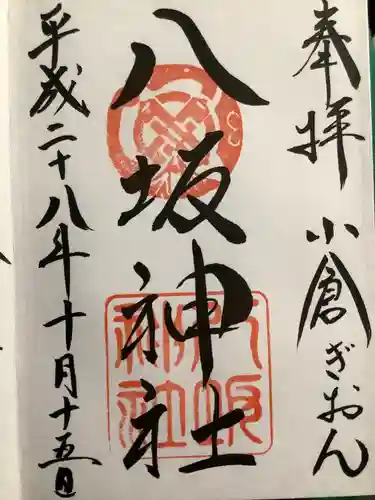 奉拝 小倉ぎおん
八坂神社
平成二十八年十月十五日
八坂神社